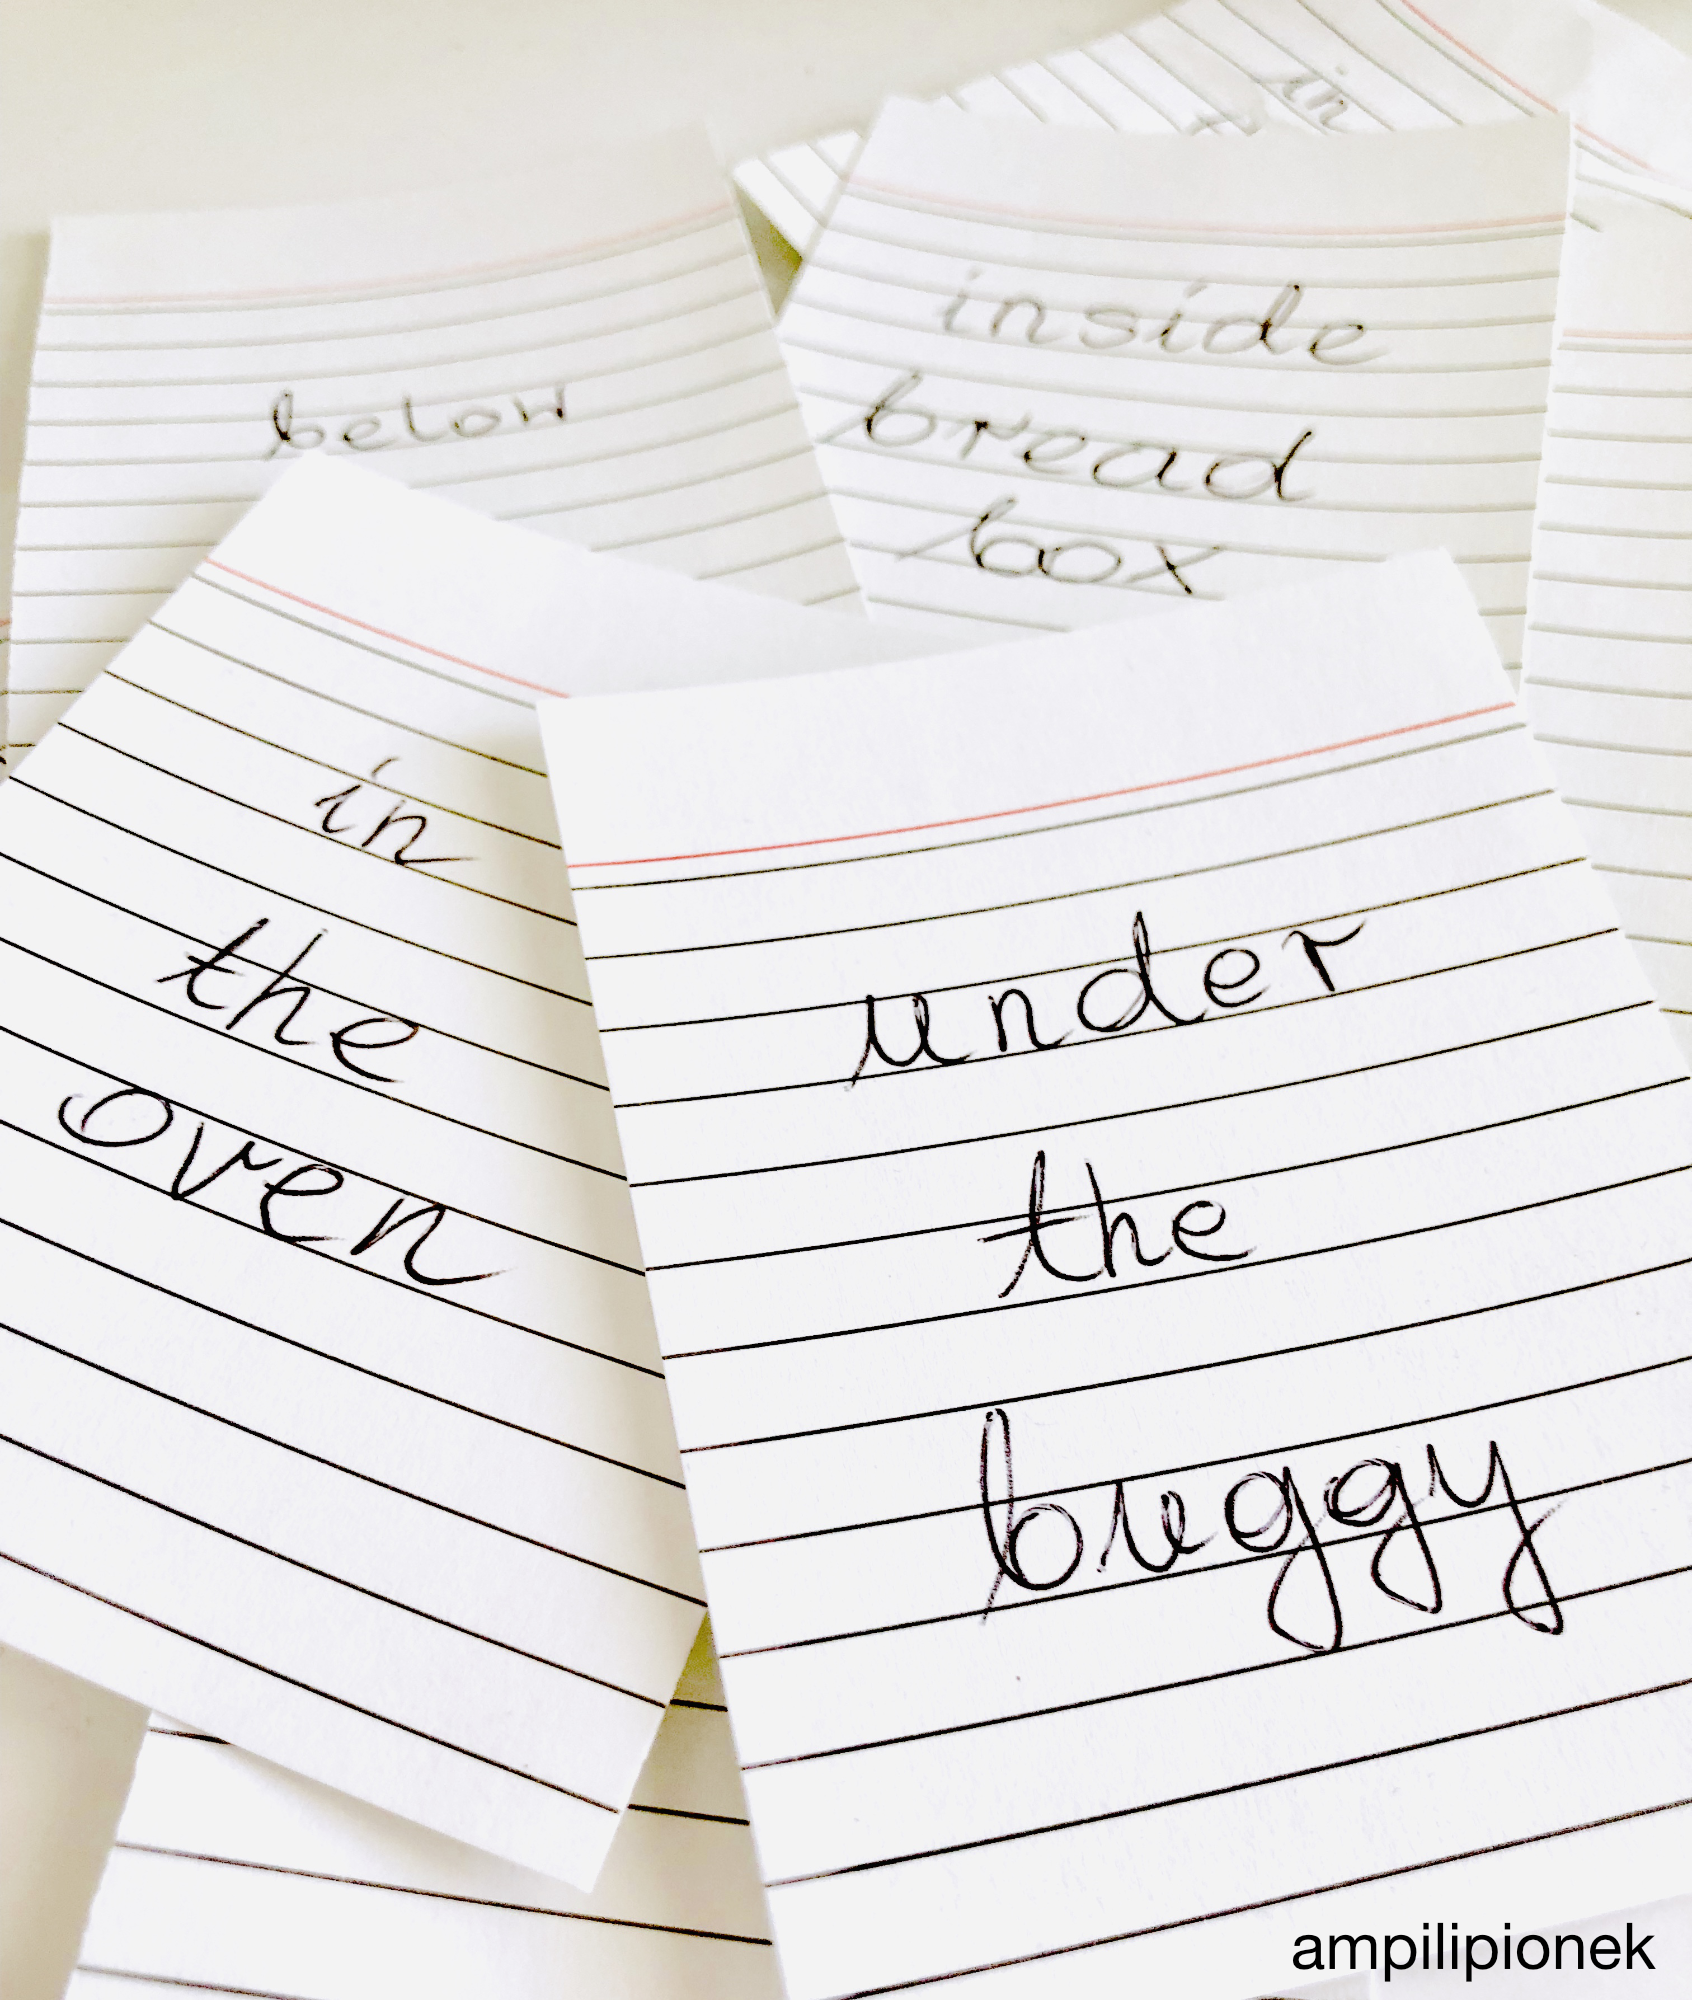 in
below
inside
bread
box
in
the
oven
under
the
buggy
ampilipionek